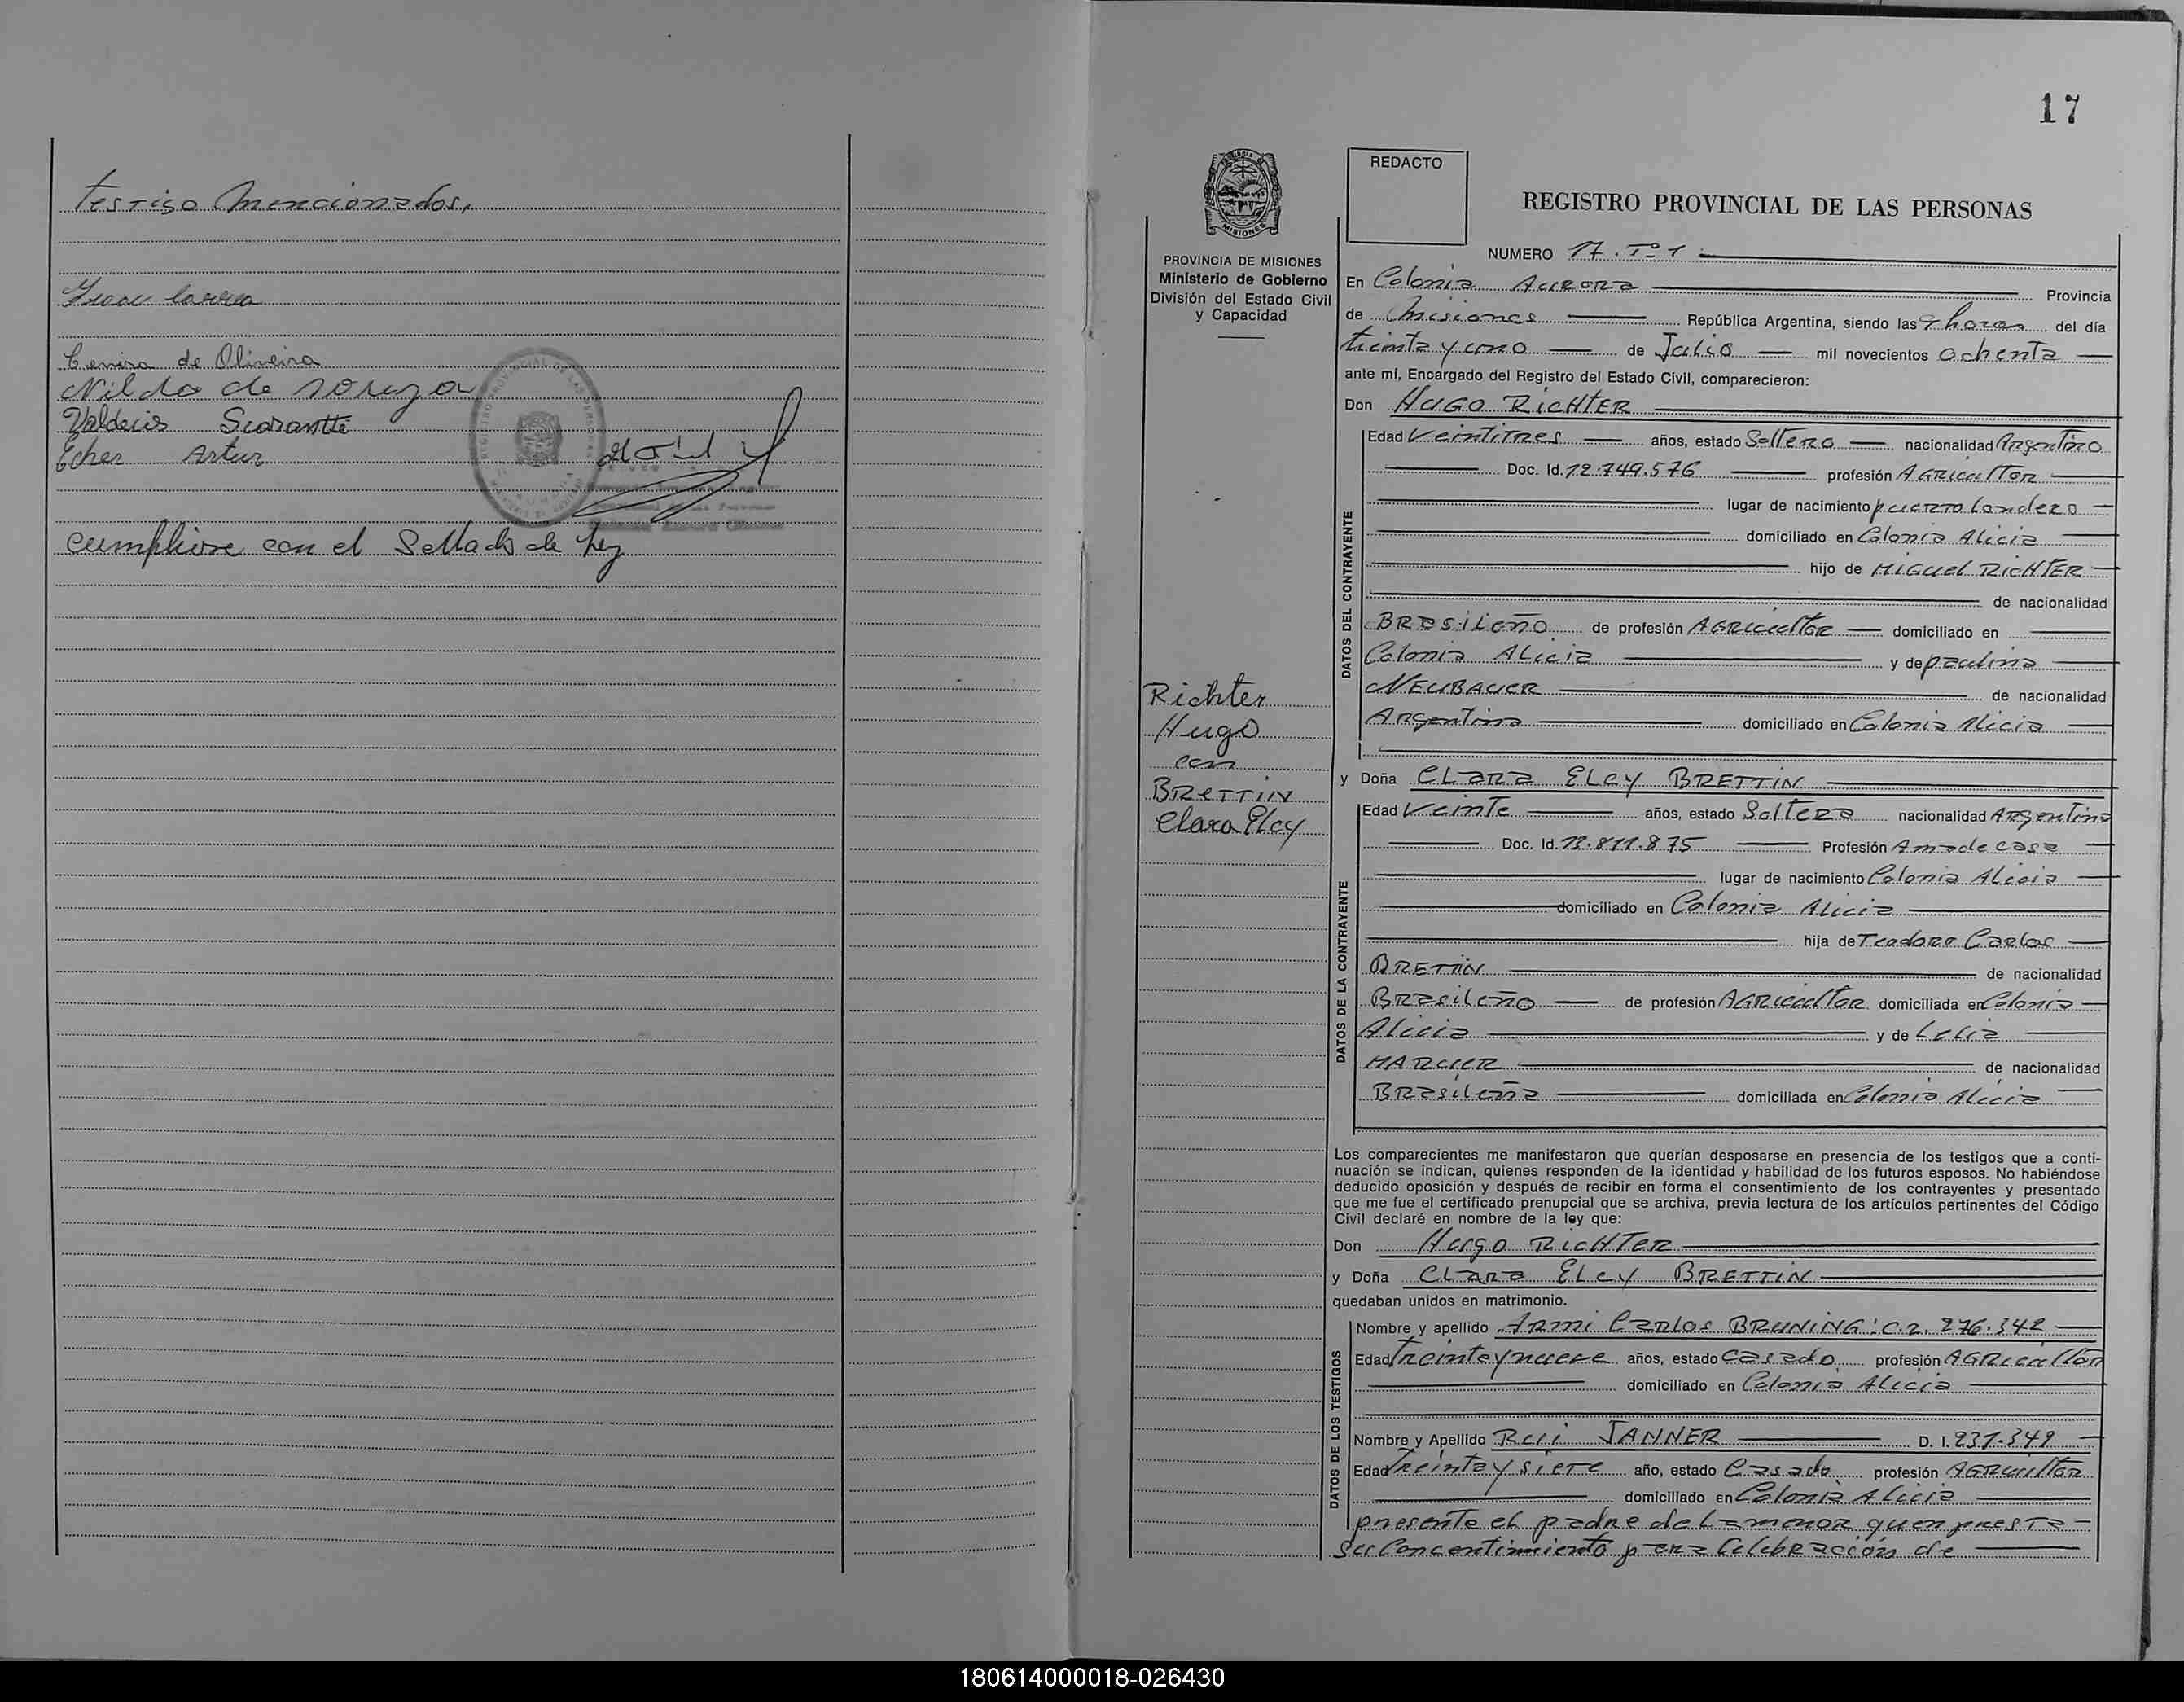 testigo mencionados,
Cenira de Oliveira
Nilda de souza
Valdecir Scarantte
Echer Artur
cumpliose con el Sellado de Ley
17
REDACTO
REGISTRO PROVINCIAL DE LAS PERSONAS
MISIONES
PROVINCIA DE MISIONES
Ministerio de Gobierno
División del Estado Civil
y Capacidad
Richter
Hugo
con
BRETTIN
Clara Elcy
NUMERO 17. Tº 1
En Colonia AURORA Provincia
de Misiones República Argentina, siendo las 9 horas del día
treinta y uno de Julio mil novecientos ochenta
ante mí, Encargado del Registro del Estado Civil, comparecieron:
Don HUGO RICHTER
DATOS DEL CONTRAYENTE
Edad Veintitres años, estado Soltero nacionalidad Argentino
Doc. Id. 12.749.576 profesión AGRICULTOR
lugar de nacimiento puerto Londero
domiciliado en Colonia Alicia
hijo de MIGUEL RICHTER
de nacionalidad
BRASILEÑO de profesión AGRICULTOR domiciliado en
Colonia ALicia y de paulina
NEUBAUER de nacionalidad
Argentina domiciliado en Colonia Alicia
y Doña CLARA ELCY BRETTIN
DATOS DE LA CONTRAYENTE
Edad Veinte años, estado Soltera nacionalidad Argentina
Doc. Id. 13.811.875 Profesión Ama de casa
lugar de nacimiento Colonia ALicia
domiciliado en Colonia ALicia
hija de Teodoro Carlos
BRETTIN de nacionalidad
BRasileño de profesión AGRICULTOR domiciliada en Colonia
Alicia y de Lelia
MARCKER de nacionalidad
BRasileña domiciliada en Colonia Alicia
Los comparecientes me manifestaron que querían desposarse en presencia de los testigos que a conti-
nuación se indican, quienes responden de la identidad y habilidad de los futuros esposos. No habiéndose
deducido oposición y después de recibir en forma el consentimiento de los contrayentes y presentado
que me fue el certificado prenupcial que se archiva, previa lectura de los artículos pertinentes del Código
Civil declaré en nombre de la ley que:
Don Hugo RICHTER
y Doña CLARA ELCY BRETTIN
quedaban unidos en matrimonio.
DATOS DE LOS TESTIGOS
Nombre y apellido ARMI CARLOS BRUNING: C.I. 276.342
Edad Treinta y nueve años, estado casado profesión AGRICULTOR
domiciliado en Colonia ALicia
Nombre y Apellido Rui JANNER D. I. 231.349
Edad Treinta y siete año, estado Casado profesión AGRUILTOR
domiciliado en Colonia ALicia
presente el padre de la menor quen presta
su Concentimiento para Celebración de
180614000018-026430